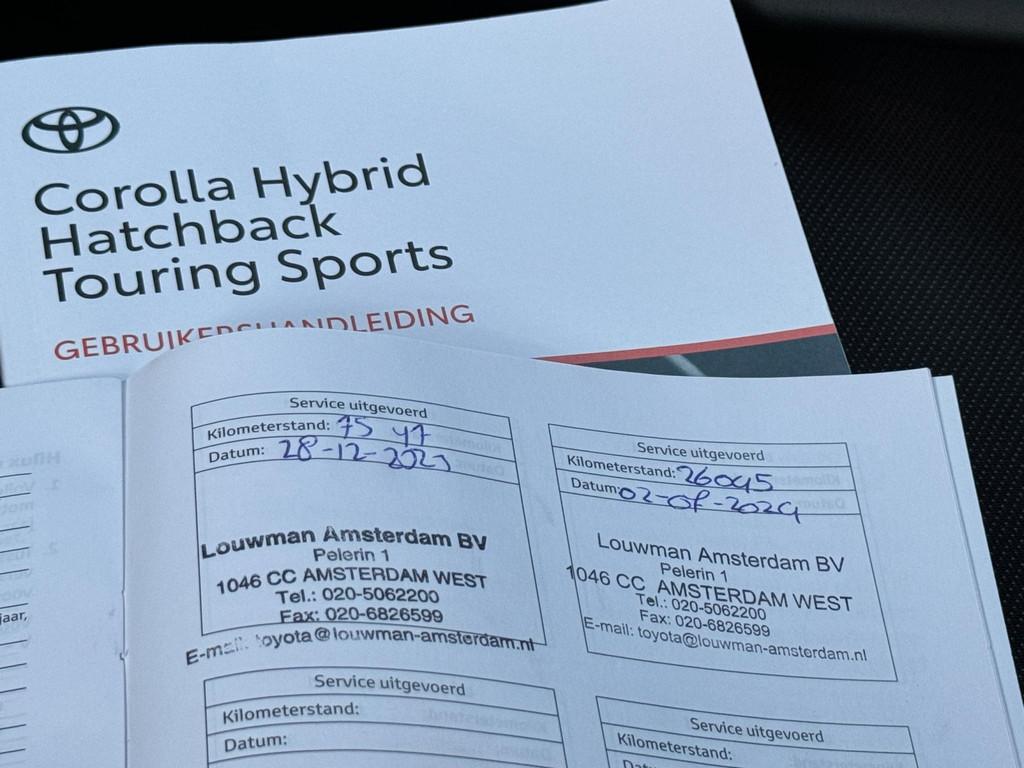 Corolla Hybrid
Hatchback
Touring Sports
GEBRUIKERSHANDLEIDING
jaar,
Service uitgevoerd
Kilometerstand: 75 47
Datum: 28-12-2023
Louwman Amsterdam BV
Pelerin 1
1046 CC AMSTERDAM WEST
Tel.: 020-5062200
Fax: 020-6826599
E-mail: toyota@louwman-amsterdam.nl
Service uitgevoerd
Kilometerstand: 26045
Datum:
Louwman Amsterdam BV
Pelerin 1
1046 CC AMSTERDAM WEST
Tel.: 020-5062200
Fax: 020-6826599
E-mail: toyota@louwman-amsterdam.nl
Service uitgevoerd
Kilometerstand:
Datum:
Service uitgevoerd
Kilometerstand: